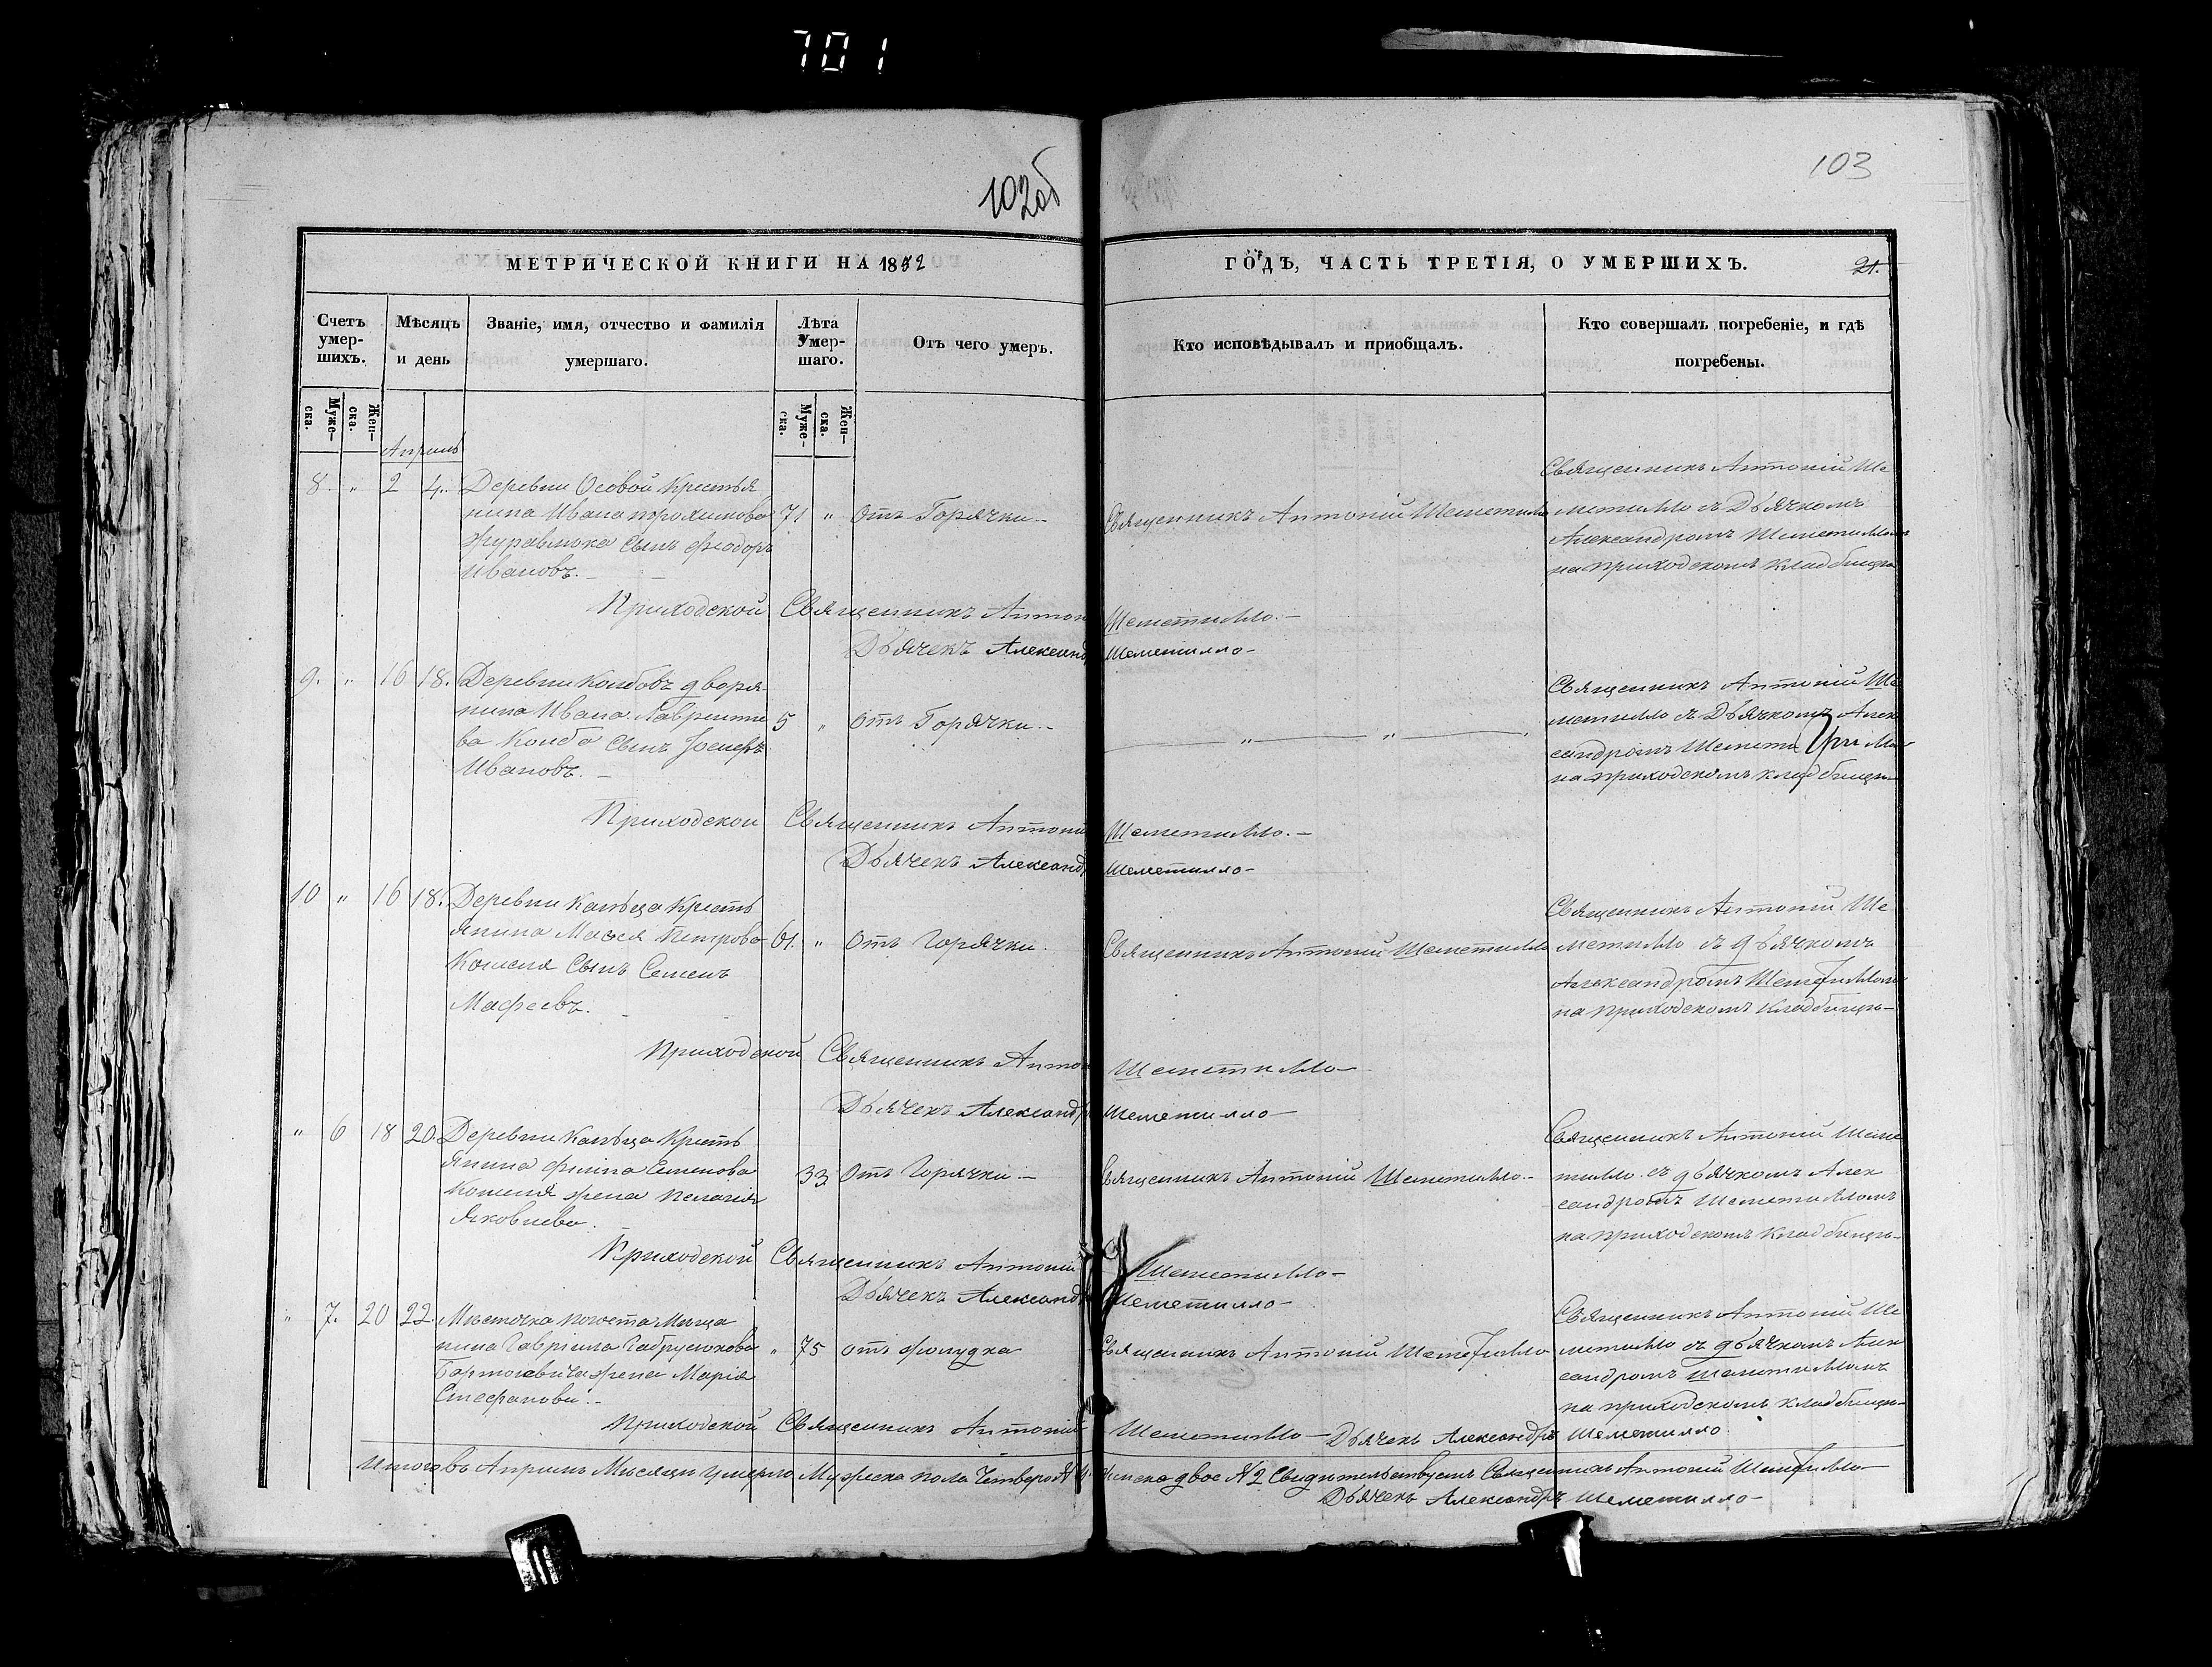 701
102об
103
МЕТРИЧЕСКОЙ КНИГИ НА 1852
ГОДЪ, ЧАСТЬ ТРЕТІЯ, О УМЕРШИХЪ.
21.
Счетъ умер-шихъ.
Мѣсяцъ и день
Званіе, имя, отчество и фамилія умершаго.
Лѣта Умер-шаго.
Отъ чего умеръ.
Кто исповѣдывалъ и приобщалъ.
Кто совершалъ погребеніе, и гдѣ погребены.
Муже-ска.
Жен-ска.
Муже-ска.
Жен-ска.
Апрель
8. " 2 4. Деревни Осовой Крестья
нина Ивана
Журавлюка Сынъ Феодоръ
Ивановъ.
71 " Отъ Горячки
Священникъ Антоній Шеметилло
Священникъ Антоній Ше
метилло съ Дьячкомъ
Александромъ Шеметилломъ
на приходскомъ кладбищѣ
Приходской Священникъ Антоній Шеметилло.
Дьячекъ Александръ Шеметилло
9. " 16 18. Деревни Колбовъ дворя
нина Ивана Лаврентіе
ва Колба Сынъ Іосифъ
Ивановъ.
5 " Отъ Горячки
" "
Священникъ Антоній Ше
метилло съ Дьячкомъ Алек
сандромъ
на приходскомъ кладбищѣ
Приходской Священникъ Антоній Шеметилло.
Дьячекъ Александръ Шеметилло
10 " 16 18. Деревни Крестъ
янина Мафея Петрова
Кошеля Сынъ Семенъ
Мафеевъ.
61. " Отъ Горячки.
Священникъ Антоній Шеметилло
Священникъ Антоній Ше
метилло съ дьячкомъ
Александромъ Шеметилломъ
на приходскомъ кладбищѣ
Приходской Священникъ Антоній Шеметилло
Дьячекъ Александръ Шеметилло
" 6 18 20. Деревни Крестъ
янина Филипа Семенова
Кошеля жена Пелагія
Яковлева.
33 Отъ Горячки
Священникъ Антоній Шеметилло.
Священникъ Антоній Шеме
тилло съ дьячкомъ Алек
сандромъ Шеметилломъ
на приходскомъ кладбищѣ
Приходской Священникъ Антоній Шеметилло
Дьячекъ Александръ Шеметилло
" 7. 20 22. Мѣсточка Погоста Мѣща
нина Гавріила
жена Марія
Стефанова.
" 75 отъ желудка
Священникъ Антоній Шеметилло
Священникъ Антоній Ше
метилло съ дьячкомъ Алек
сандромъ Шеметилломъ
на приходскомъ кладбищѣ
Приходской Священникъ Антоній Шеметилло Дьячекъ Александръ Шеметилло
Итого въ Апрелѣ Мѣсяцѣ Умерло Мужеска пола Четверо № 4. Женска двое № 2 Свидѣтельствуетъ Священникъ Антоній Шеметилло
Дьячекъ Александръ Шеметилло